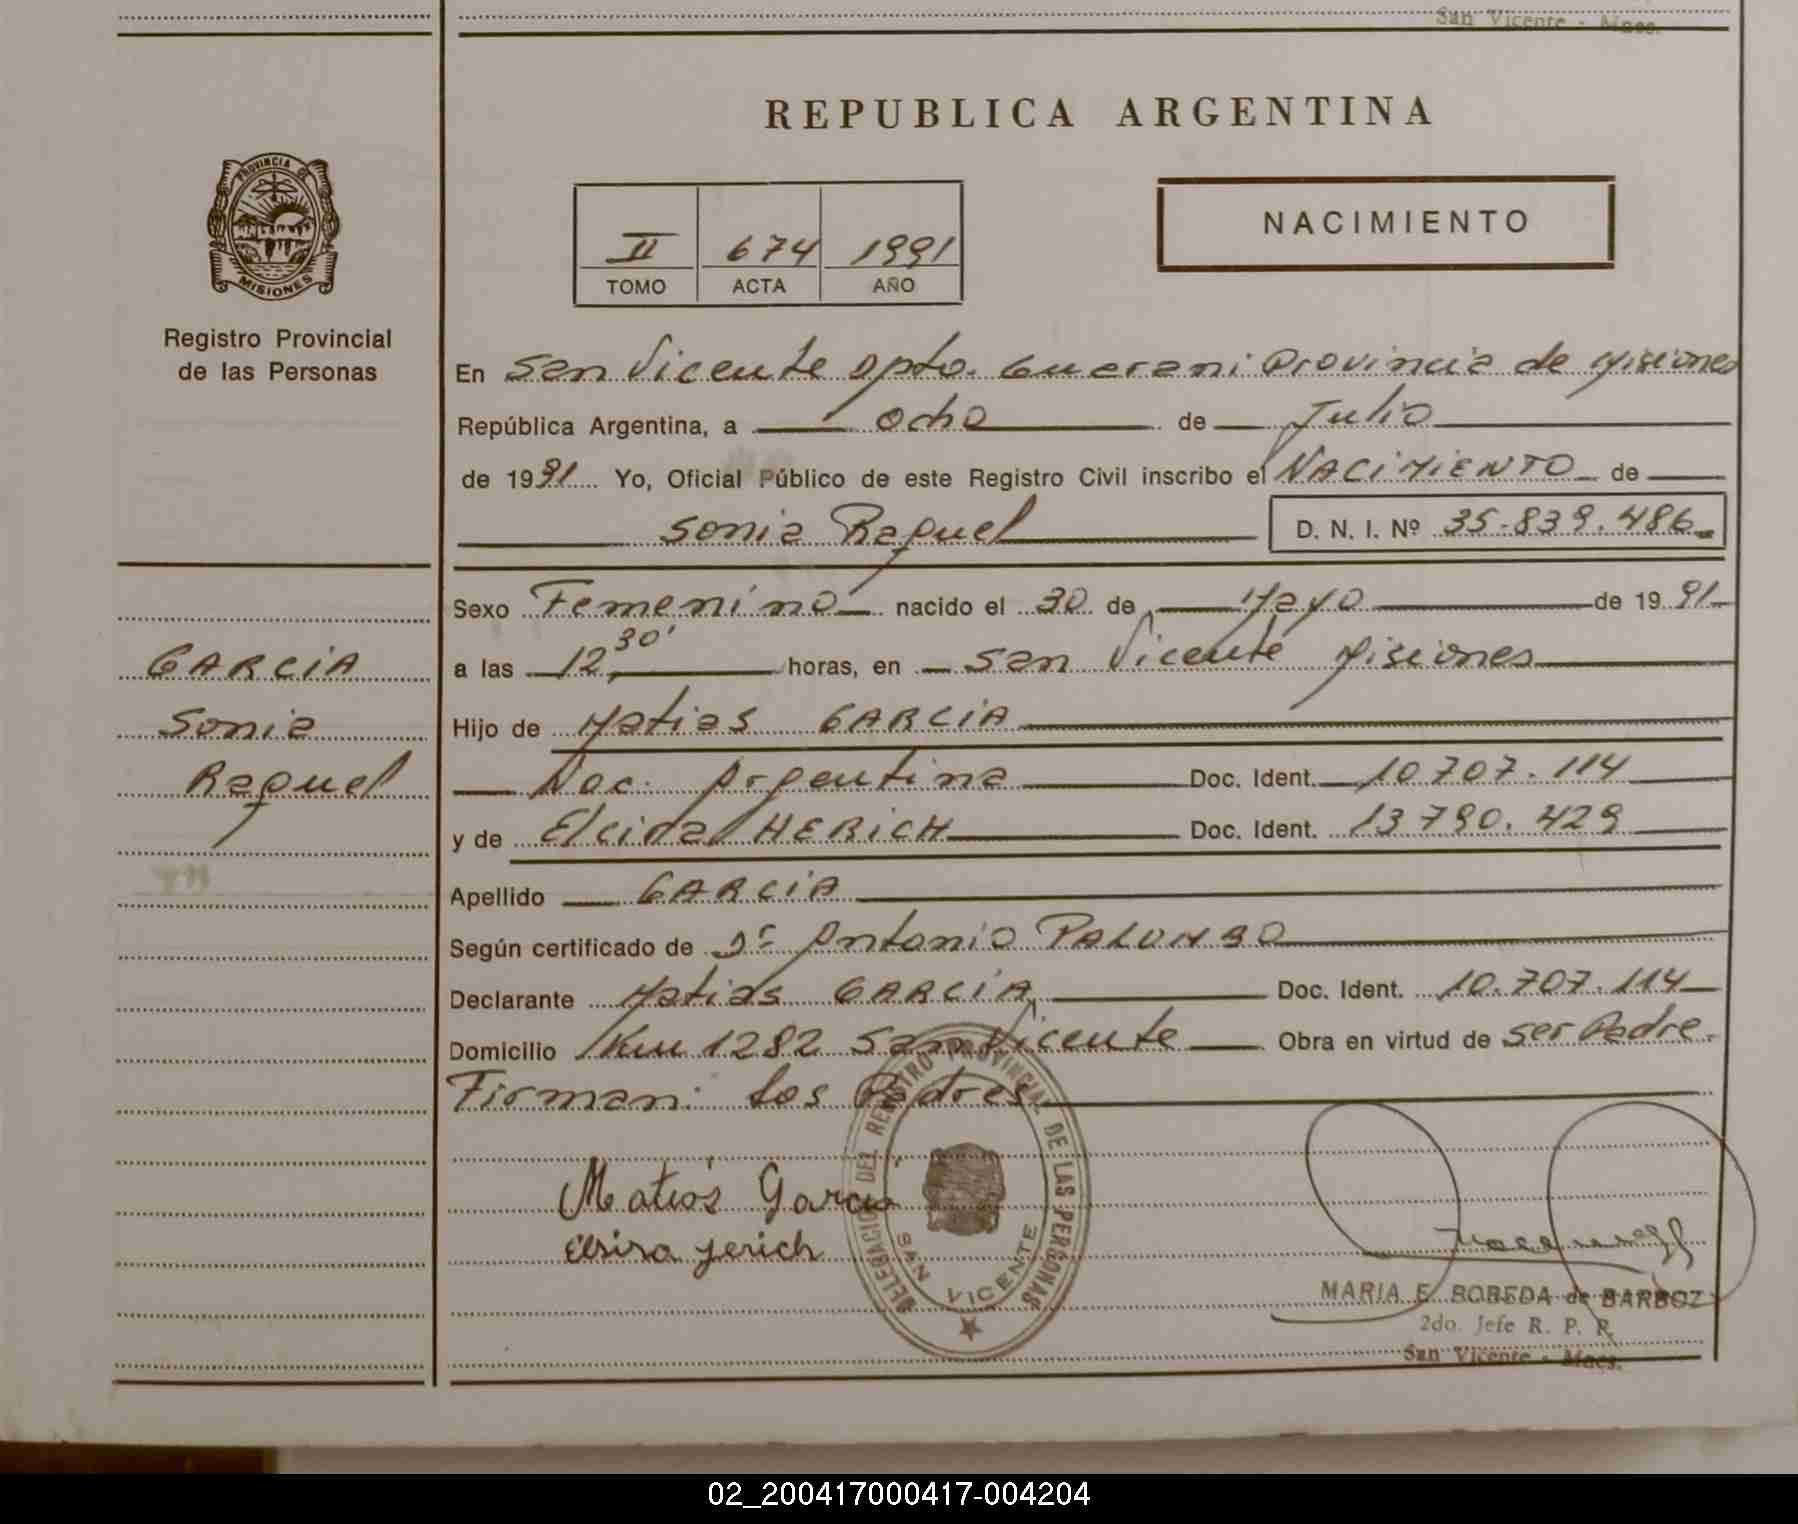 San Vicente - Mnes.
REPUBLICA ARGENTINA
PROVINCIA DE
MISIONES
Registro Provincial
de las Personas
II 674 1991
TOMO ACTA AÑO
NACIMIENTO
En San Vicente Dpto. Guarani Provincia de Misiones
República Argentina, a Ocho de Julio
de 1991 Yo, Oficial Público de este Registro Civil inscribo el NACIMIENTO de
Sonia Raquel D. N. I. Nº 35.839.486
Sexo Femenino nacido el 30 de Mayo de 1991
a las 12,30' horas, en San Vicente Misiones
Hijo de Matias GARCIA
Nac. Argentina Doc. Ident. 10.707.114
y de Elcira HERICH Doc. Ident. 13.790.429
Apellido GARCIA
Según certificado de Dr Antonio PALUMBO
Declarante Matias GARCIA, Doc. Ident. 10.707.114
Domicilio Km 1282 San Vicente Obra en virtud de ser Padre.
Firman: Los Padres
GARCIA
Sonia
Raquel
Matías Garcia
Elsira Jerich
DELEGACION DEL REGISTRO PROVINCIAL DE LAS PERSONAS
SAN VICENTE
MARIA E. BOBEDA de BARBOZ
2do. Jefe R. P. P.
San Vicente - Mnes.
02_200417000417-004204